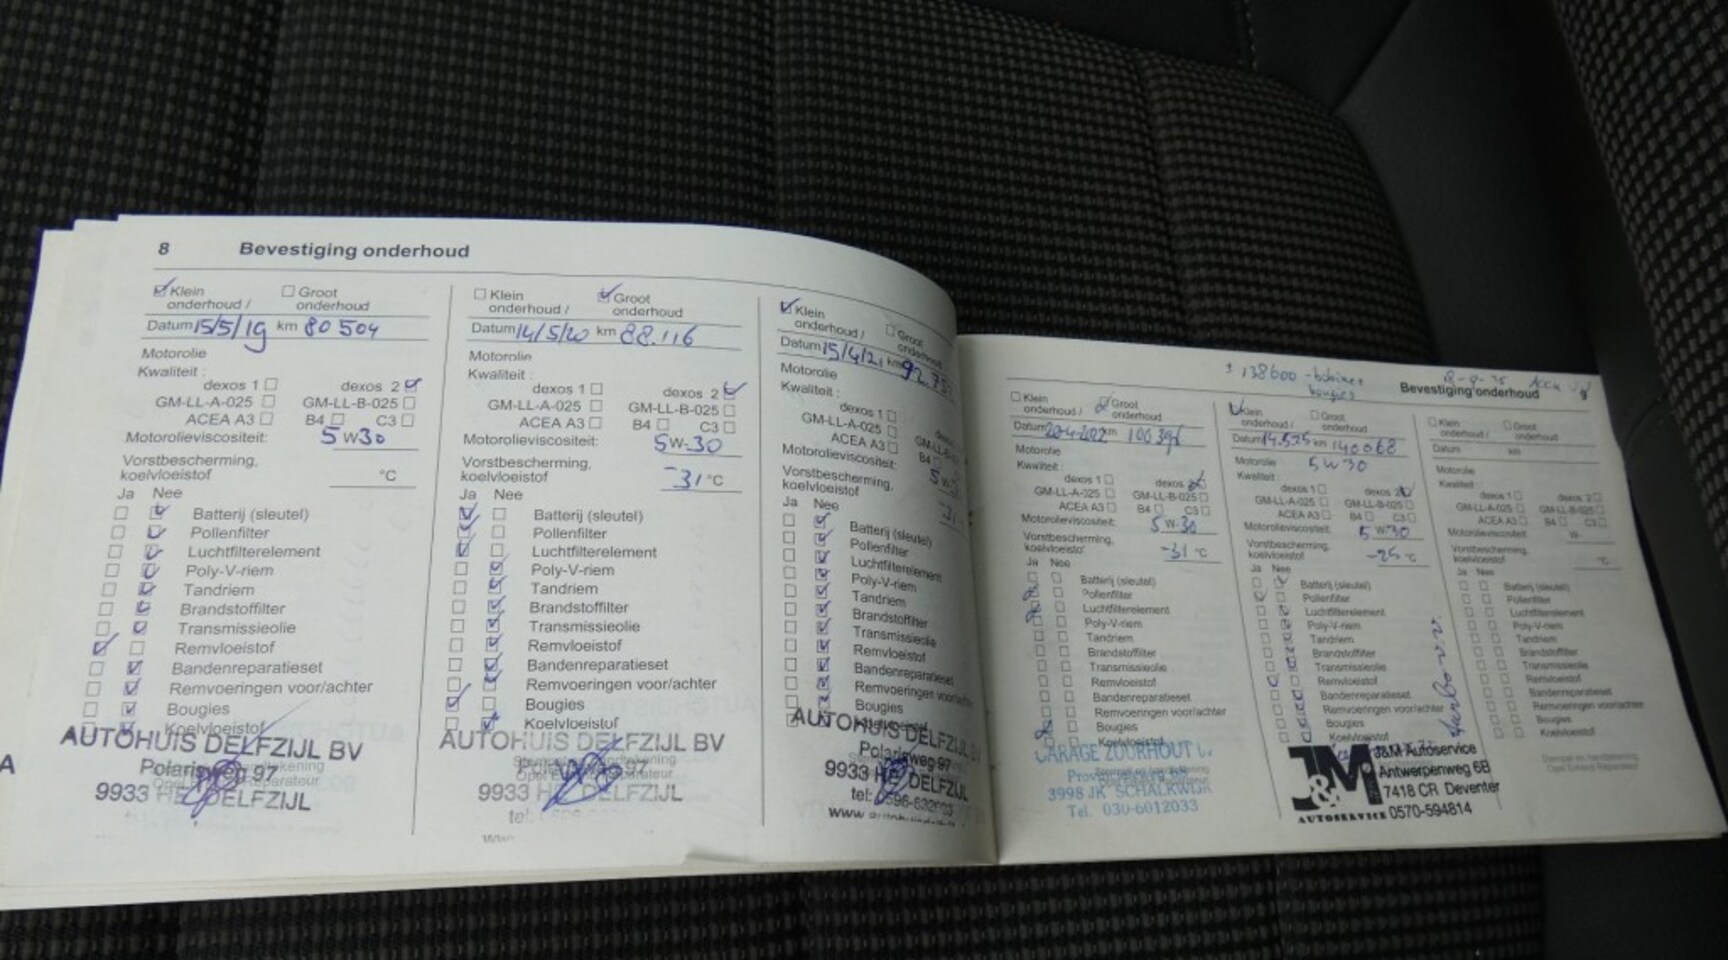 8 Bevestiging onderhoud
Klein onderhoud /
Groot onderhoud
Datum 15/5/19 km 80 504
Motorolie
Kwaliteit :
dexos 1 dexos 2
GM-LL-A-025 GM-LL-B-025
ACEA A3 B4 C3
Motorolieviscositeit: 5 W30
Vorstbescherming,
koelvloeistof °C
Ja Nee
Batterij (sleutel)
Pollenfilter
Luchtfilterelement
Poly-V-riem
Tandriem
Brandstoffilter
Transmissieolie
Remvloeistof
Bandenreparatieset
Remvoeringen voor/achter
Bougies
Koelvloeistof
AUTOHUIS DELFZIJL BV
Polarisweg 97
9933 HE DELFZIJL
Klein onderhoud /
Groot onderhoud
Datum 14/5/20 km 88.116
Motorolie
Kwaliteit :
dexos 1 dexos 2
GM-LL-A-025 GM-LL-B-025
ACEA A3 B4 C3
Motorolieviscositeit: 5W-30
Vorstbescherming,
koelvloeistof -31 °C
Ja Nee
Batterij (sleutel)
Pollenfilter
Luchtfilterelement
Poly-V-riem
Tandriem
Brandstoffilter
Transmissieolie
Remvloeistof
Bandenreparatieset
Remvoeringen voor/achter
Bougies
Koelvloeistof
AUTOHUIS DELFZIJL BV
Polarisweg 97
9933 HE DELFZIJL
tel:
Klein onderhoud /
Groot onderhoud
Datum 15/4/21 km
Motorolie
Kwaliteit :
dexos 1
GM-LL-A-025
ACEA A3 B4
Motorolieviscositeit:
Vorstbescherming,
koelvloeistof
Ja Nee
Batterij (sleutel)
Pollenfilter
Luchtfilterelement
Poly-V-riem
Tandriem
Brandstoffilter
Transmissieolie
Remvloeistof
Bandenreparatieset
Remvoeringen
Bougies
AUTOHUIS DELFZIJL BV
Polarisweg 97
9933 HE DELFZIJL
tel:
www
138600 - bobines
bougies
Bevestiging onderhoud 9
Klein onderhoud /
Groot onderhoud
Datum km
Motorolie
Kwaliteit :
dexos 1 dexos 2
GM-LL-A-025 GM-LL-B-025
ACEA A3 B4 C3
Motorolieviscositeit: 5 W-30
Vorstbescherming,
koelvloeistof -31 °C
Ja Nee
Batterij (sleutel)
Pollenfilter
Luchtfilterelement
Poly-V-riem
Tandriem
Brandstoffilter
Transmissieolie
Remvloeistof
Bandenreparatieset
Remvoeringen voor/achter
Bougies
Koelvloeistof
GARAGE ZUURHOUT
3998 JK SCHALKWIJK
Tel. 030-6012033
Klein onderhoud /
Groot onderhoud
Datum 14.5.25 km 140068
Motorolie 5W30
Kwaliteit :
dexos 1 dexos 2
GM-LL-A-025 GM-LL-B-025
ACEA A3 B4 C3
Motorolieviscositeit: 5 W-30
Vorstbescherming,
koelvloeistof -25 °C
Ja Nee
Batterij (sleutel)
Pollenfilter
Luchtfilterelement
Poly-V-riem
Tandriem
Brandstoffilter
Transmissieolie
Remvloeistof
Bandenreparatieset
Remvoeringen voor/achter
Bougies
Koelvloeistof
J&M
AUTOSERVICE
J&M Autoservice
Antwerpenweg 6B
7418 CR Deventer
0570-594814
Klein onderhoud /
Groot onderhoud
Datum km
Motorolie
Kwaliteit
dexos 1 dexos 2
GM-LL-A-025 GM-LL-B-025
ACEA A3 B4 C3
Motorolieviscositeit W-
Vorstbescherming,
koelvloeistof °C
Ja Nee
Batterij (sleutel)
Pollenfilter
Luchtfilterelement
Poly-V-riem
Tandriem
Brandstoffilter
Transmissieolie
Remvloeistof
Bandenreparatieset
Remvoeringen voor/achter
Bougies
Koelvloeistof
Stempel en handtekening
Opel Erkend Reparateur